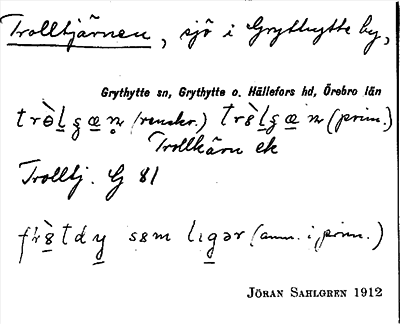 Trolltjärnen, sjö i Grythytte by,
Grythytte sn, Grythytte o. Hällefors hd, Örebro län
(renskr.) (prim.)
Trollkärn ek
Trolltj. G 81
sɐm lıgər (ann. i prim.)
JÖRAN SAHLGREN 1912